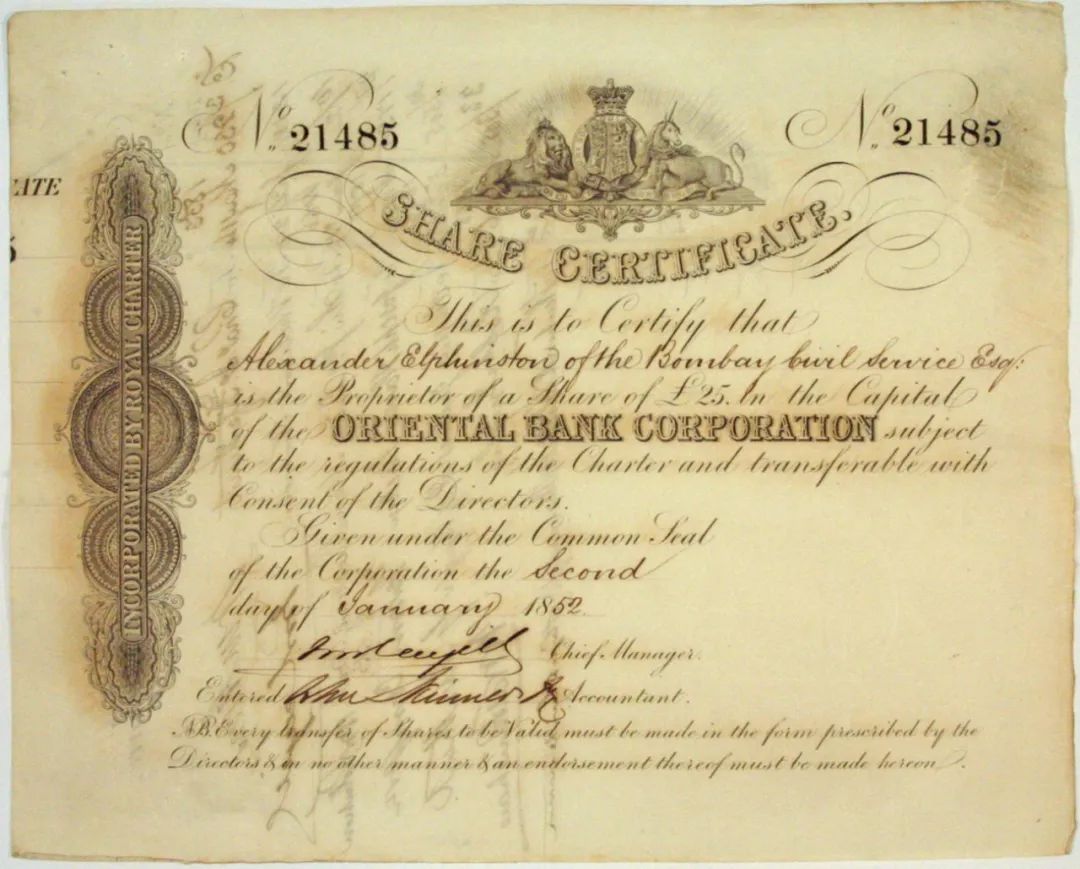 ATE
INCORPORATED BY ROYAL CHARTER
No. 21485
No. 21485
SHARE CERTIFICATE.
This is to Certify that
Alexander Elphinston of the Bombay Civil Service Esqr:
is the Proprietor of a Share of £25. In the Capital
of the ORIENTAL BANK CORPORATION subject
to the regulations of the Charter and transferable with
Consent of the Directors.
Given under the Common Seal
of the Corporation the Second
day of January 1852
Chief Manager.
Entered John Skinner Accountant.
NB. Every transfer of Shares to be Valid must be made in the form prescribed by the
Directors & in no other manner & an endorsement thereof must be made hereon.